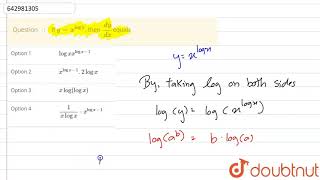 642981305
Question : If y = x^{log x}, then dy/dx equals
Option 1 log x x^{log x - 1}
Option 2 x^{log x - 1} . 2 log x
Option 3 x log(log x)
Option 4 1/(x log x) . x^{log x - 1}
y = x^{log x}
By, taking log on both sides
log (y) = log (x^{log x})
log(a^b) = b · log(a)
doubtnut